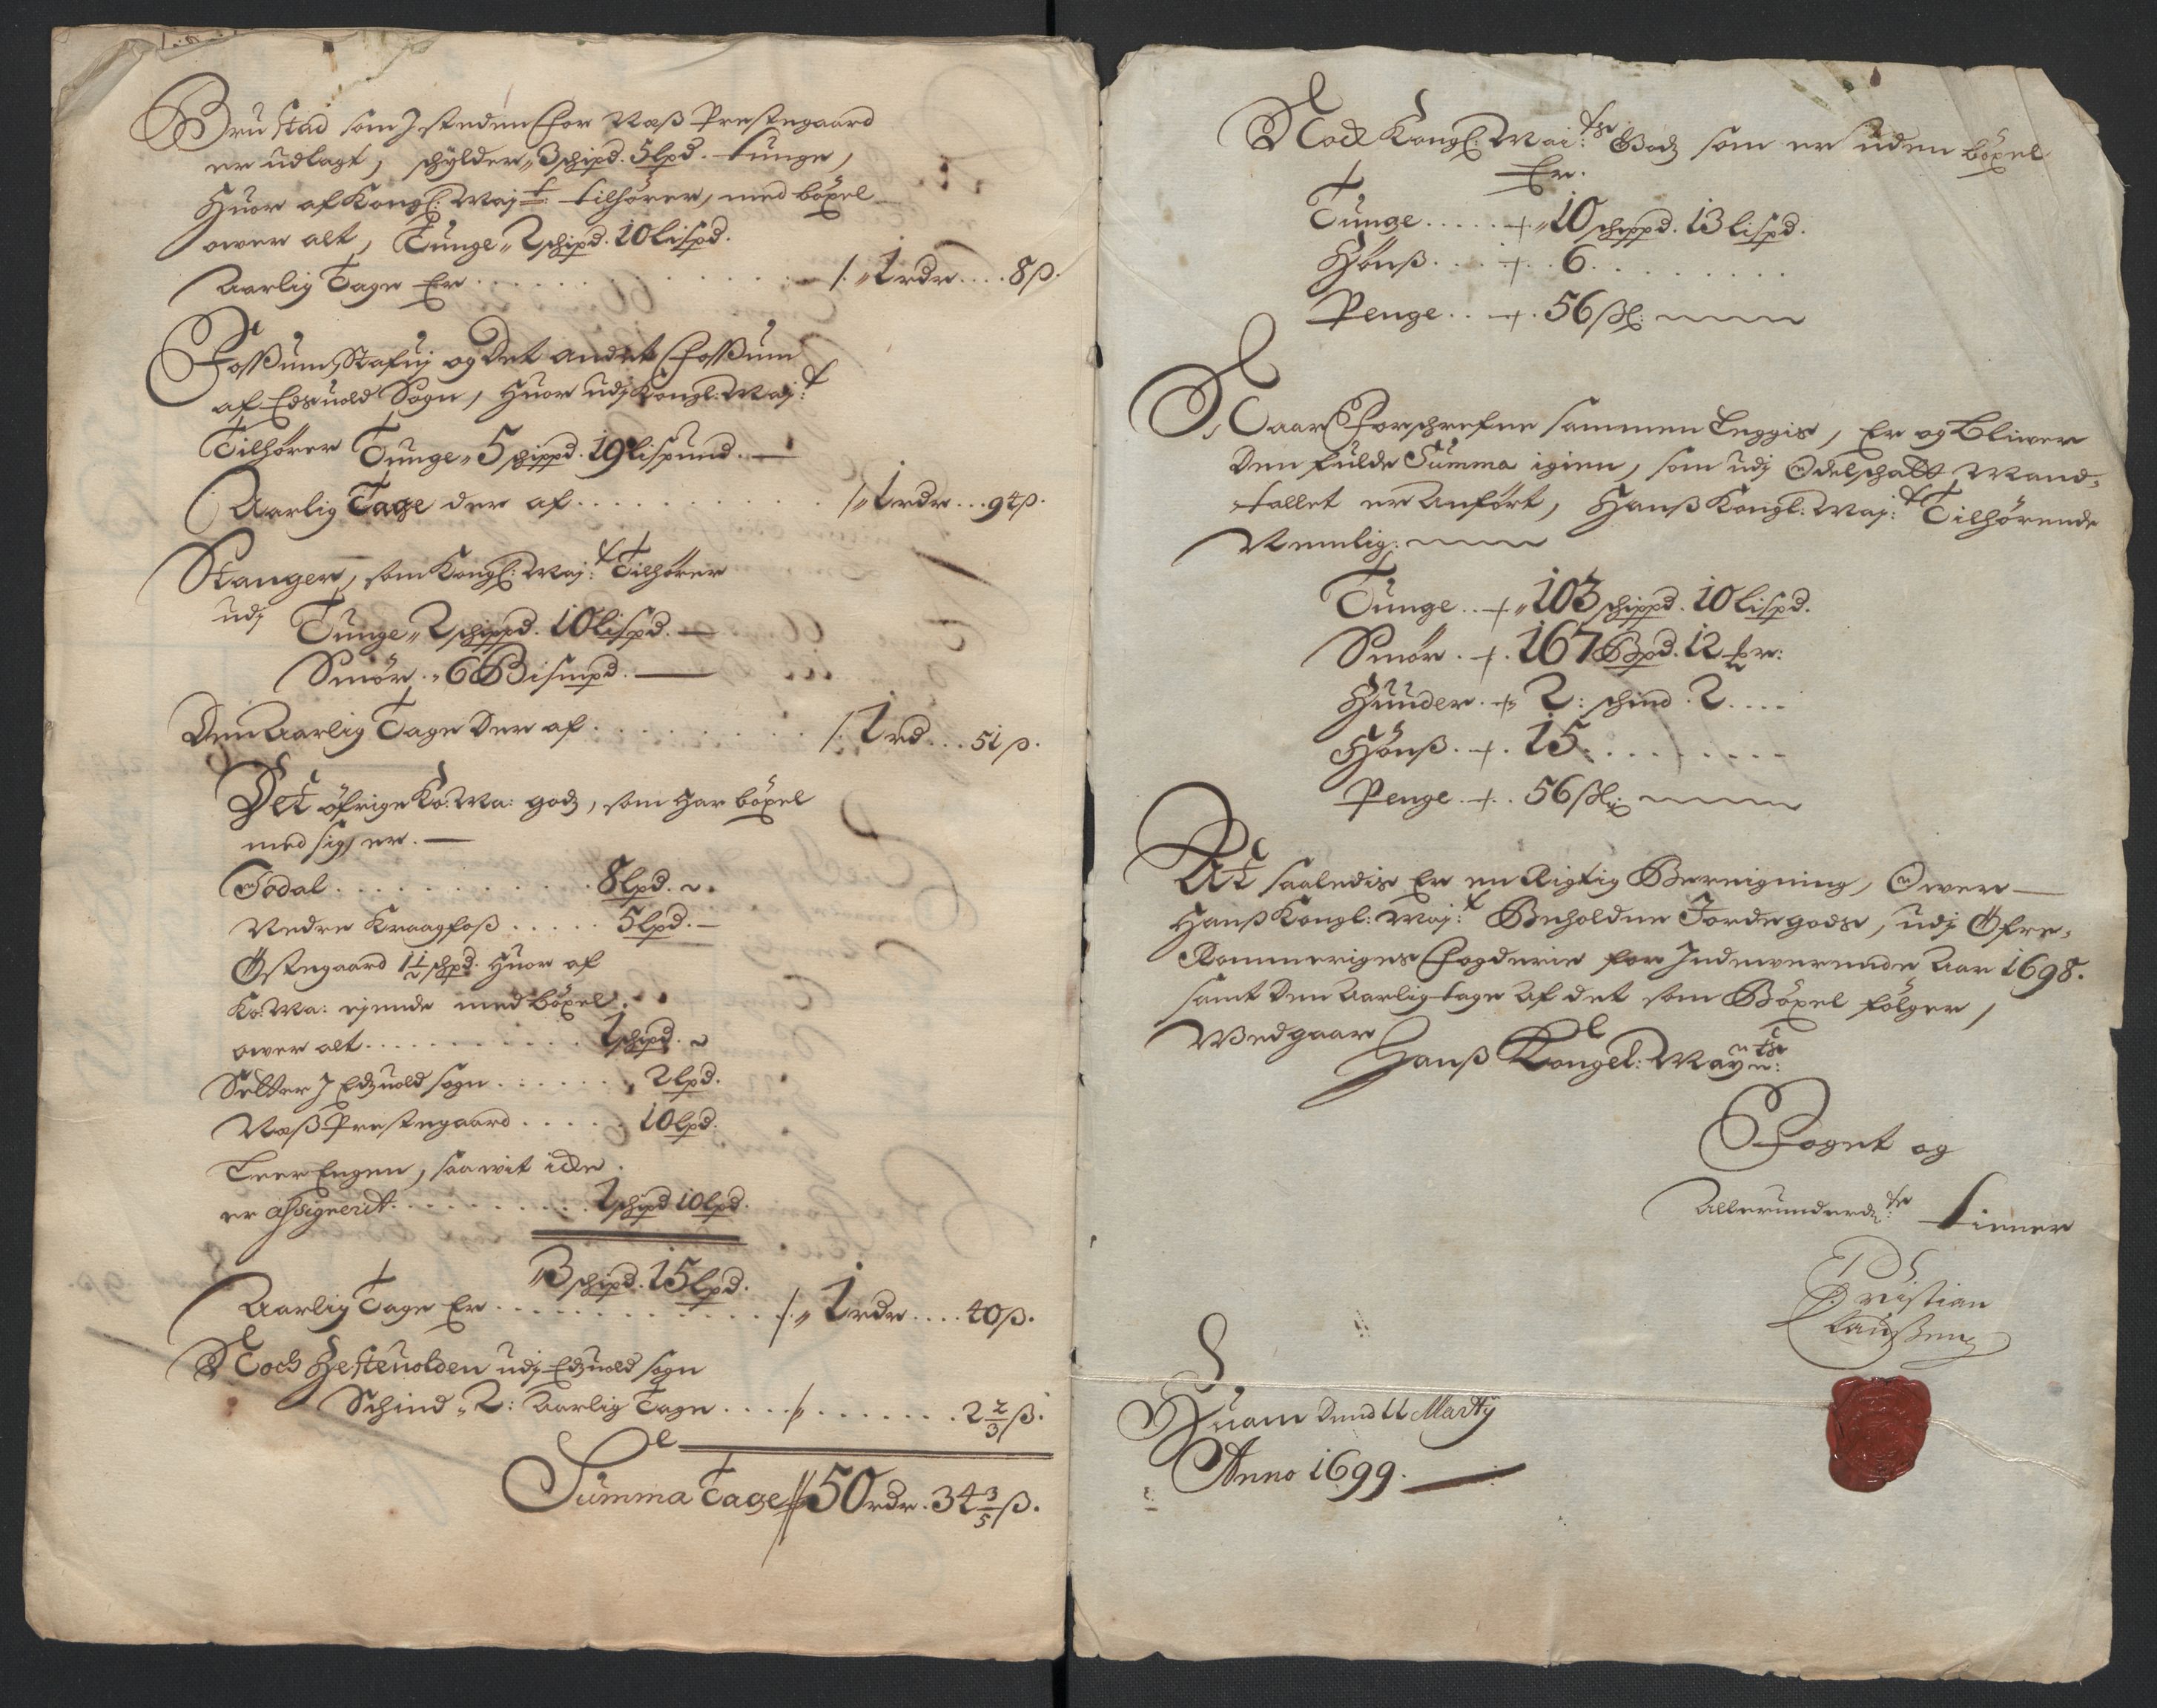 Brustad som J steden for Næss Prestegaard
er udlagt, schylder 3 schipd. 5 lpd. tunge,
Huor af Kongl: Maj:t tilhører, med böxel
ower alt, Tunge 2 schipd. 10 lispd.
Aarlig Tage Er . . . . . 1 rdr. . . . 8 ß.
Fossum, Stafuj og Det andet Fossum
af Edsuold Sogn, Huor udj Kongl: Maj:t
Tilhörer Tunge 5 schippd. 19 lispund. —
Aarlig Tage der af . . . . . 1 rdr . . . 94 ß.
Stanger, som Kongl: Maj:t Tilhörer
udj Tunge 2 schippd. 10 lispd. —
Smör. 6 Bismpd. —
Den Aarlig Tage Der af . . . . . 1 rd . . . 51 ß.
Det öfrige Ko: Ma: godz, som har böxel
med sig, er. —
Todal . . . . . 8 lpd.
Nedre Kraagfoss . . . . . 5 lpd. —
Östegaard 1 1/2 schpd. Huor af
Ko: Ma: ejende med böxel
ower alt . . . . . 1 schipd.
Selter J Edzuold sogn . . . . . 2 lpd.
Næss Prestegaard . . . . . 10 lpd.
Leer Engen, saawit icke
er assignerit . . . . . 1 schipd 10 lpd.
3 schipd. 15 lpd.
Aarlig Tage Er . . . . . 1 rdr . . . . 40 ß.
Noch Hesteuolden udj Edzuold sogn
Schind 2: Aarlig Tage . . . . . 2 2/3 ß.
Summa Tage 50 rdr. 34 3/5 ß.
Nock Kongl: Mai:ts Godz som er uden böxel
Er.
Tunge . . . . . 10 schippd. 13 lispd.
Hönß . . . . 6 . . . . .
Penge . . . 56 ßl:
Naar Forschrefne sammen Leggis, Er og bliwer
Den fulde Summa igien, som udj Odelschatt Mand-
tallet er Anfört, Hanß Kongl: Maj:t Tilhörende
Nemlig:
Tunge . . 103 schippd. 10 lispd.
Smör . . 167 Bpd. 12 mr:
Huuder . 2: schind . 2 . . . .
Hönß . . 15 . . . . .
Penge . . 56 ßl:
At saaledis Er en Rigtig Beregning, Ower
Hanß Kongl: Maj:t Beholdne Jordegods, udj Öfre-
Rommeriges Fogderie for Indewerende Aar 1698.
samt Den Aarlig tage Af det som Böxel fölger,
Wedgaar
Hanß Kongel: May:tz
Foget og
Allerunderd:ste tiener
Christian
Claussen
Huam Dend 11 Martij
Anno 1699.